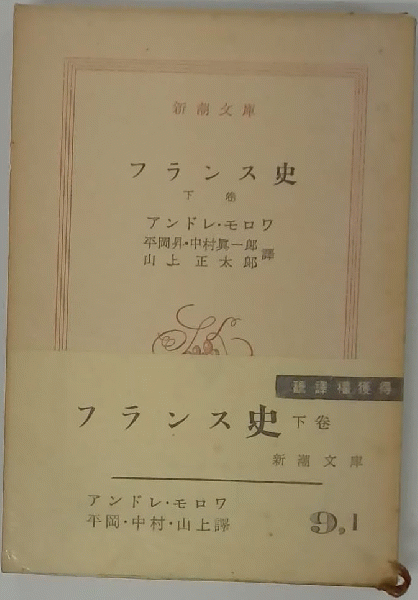 新潮文庫
フランス史
下巻
アンドレ・モロワ
平岡昇・中村眞一郎
山上正太郎
譯
飜譯權獲得
フランス史 下巻
新潮文庫
アンドレ・モロワ
平岡・中村・山上譯
9,1